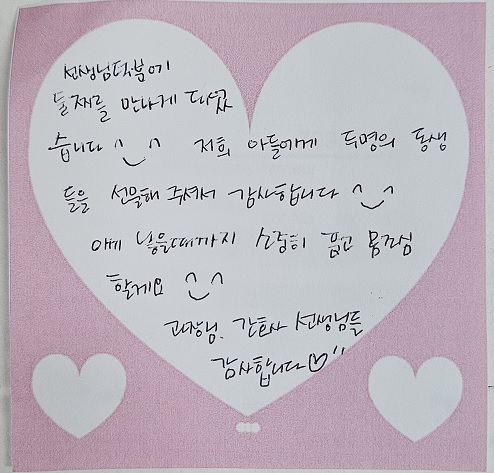 선생님덕분에
둘째를 만나게 되었
습니다 ^‿^ 저희 아들에게 두명의 동생
들을 선물해 주셔서 감사합니다 ^‿^
이제 낳을때까지 소중히 품고 몸조심
할게요 ^‿^
간호사 선생님들
감사합니다♡"